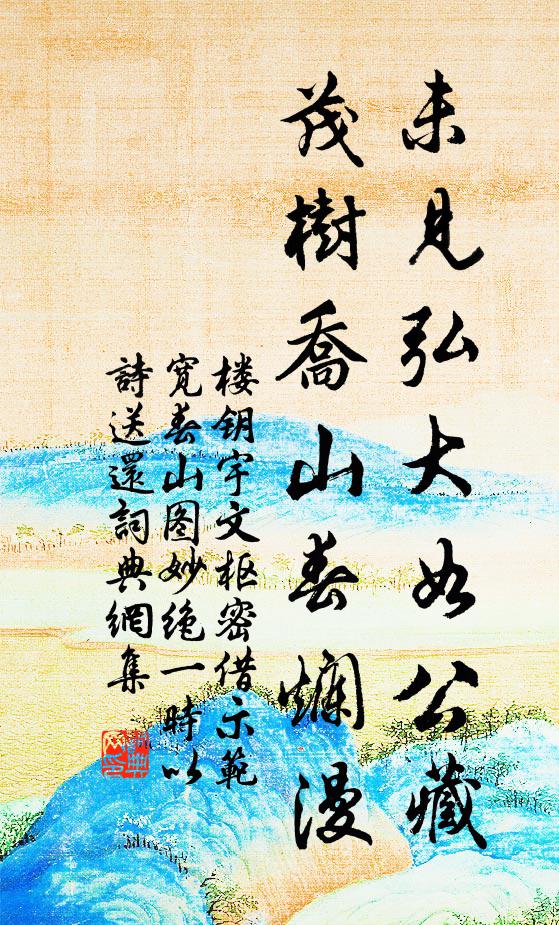 未見弘大如公藏
茂樹喬山春爛漫
楼钥宇文枢密借示範
寛春山图妙绝一時以
詩送還詞典網集